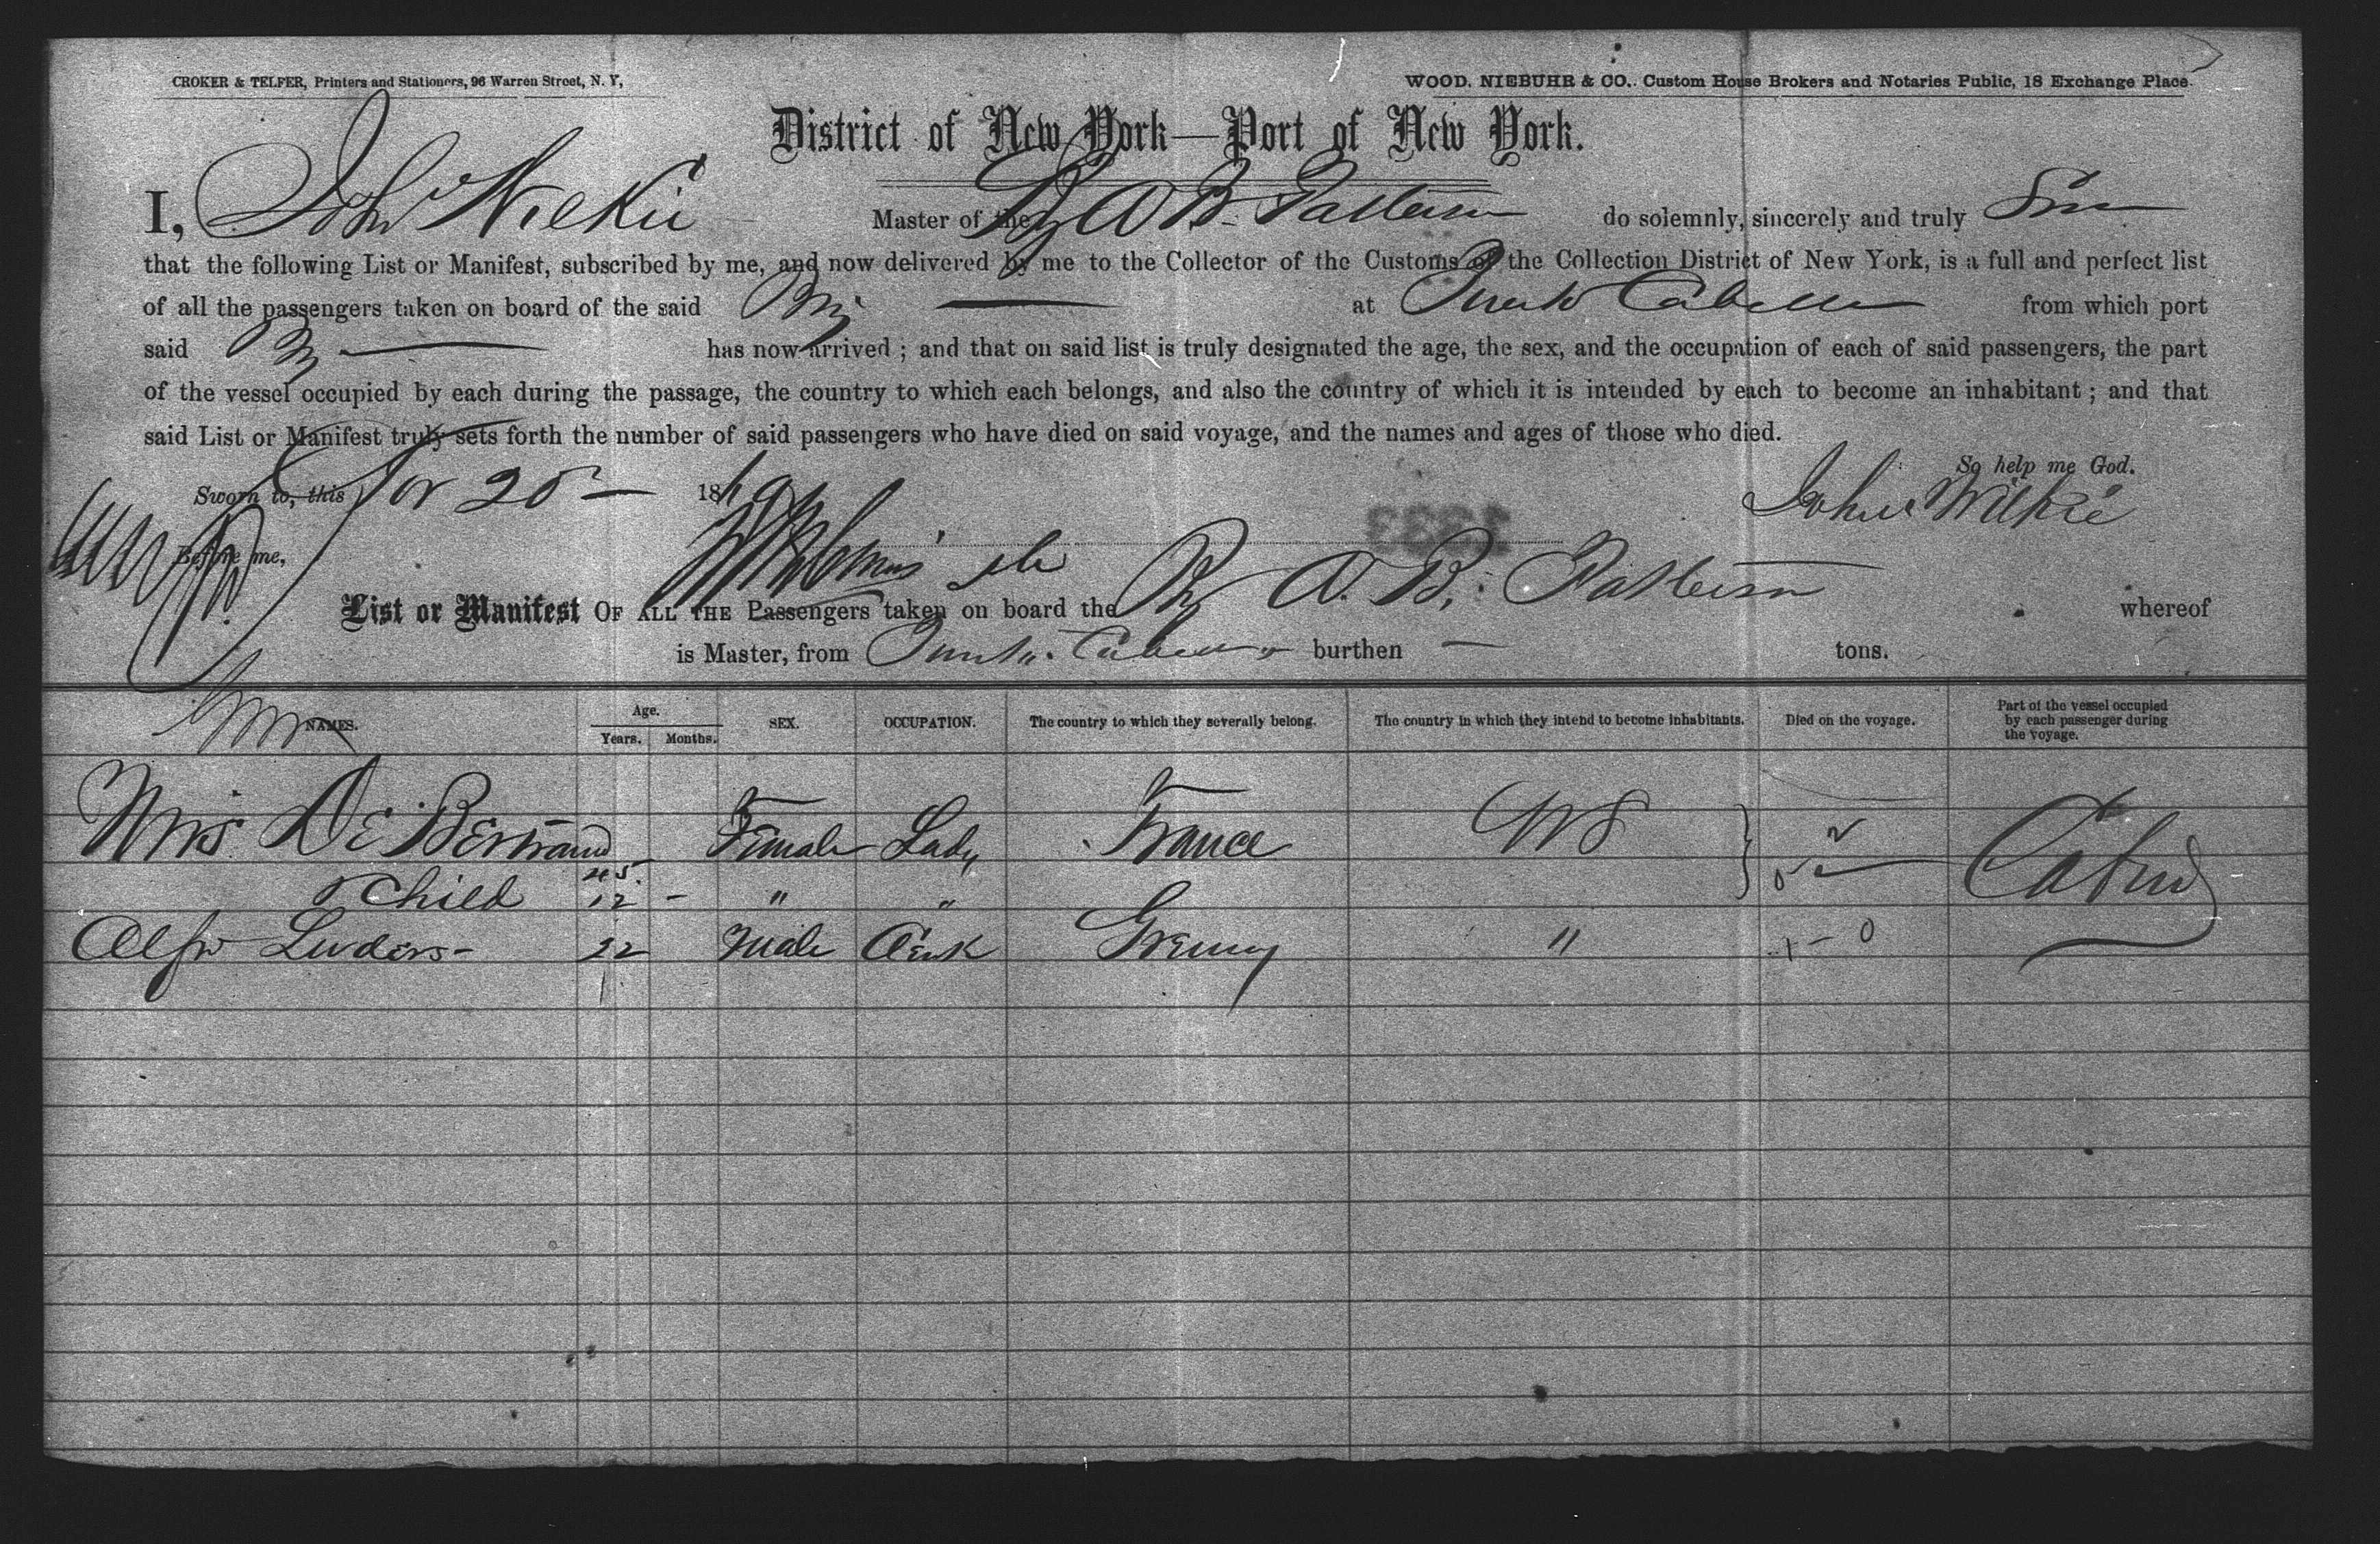 CROKER & TELFER, Printers and Stationers, 96 Warren Street, N. Y,
WOOD, NIEBUHR & CO., Custom House Brokers and Notaries Public, 18 Exchange Place.
District of New York—Port of New York.
I, John Wilkie Master of the Brig A B Patterson do solemnly, sincerely and truly
that the following List or Manifest, subscribed by me, and now delivered by me to the Collector of the Customs of the Collection District of New York, is a full and perfect list
of all the passengers taken on board of the said Brig — at Puerto Cabello from which port
said Brig — has now arrived ; and that on said list is truly designated the age, the sex, and the occupation of each of said passengers, the part
of the vessel occupied by each during the passage, the country to which each belongs, and also the country of which it is intended by each to become an inhabitant ; and that
said List or Manifest truly sets forth the number of said passengers who have died on said voyage, and the names and ages of those who died.
So help me God.
Sworn to, this Nov 20 — 1869 John Wilkie
Before me,
1333
List or Manifest OF ALL THE Passengers taken on board the Brig A. B. Patterson whereof
is Master, from Puerto Cabello burthen — tons.
NAMES. Age. Years. Months. SEX. OCCUPATION. The country to which they severally belong. The country in which they intend to become inhabitants. Died on the voyage. Part of the vessel occupied by each passenger during the voyage.
Mrs De Bertrand 45 Female Lady France US Cabin
& Child 12 - " "
Alfr Luders - 22 Male Clerk Germy "